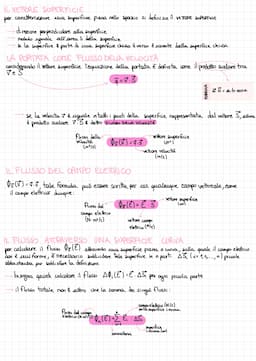 IL VETTORE SUPERFICIE
per caratterizzare una superficie piana nello spazio si definisce il vettore superficie
→ direzione perpendicolare alla superficie
→ modulo uguale all'area della superficie
→ se la superficie è parte di una superficie chiusa il verso è uscente dalla superficie chiusa
LA PORTATA COME FLUSSO DELLA VELOCITÀ
considerando il vettore superficie l'equazione della portata è definita come il prodotto scalare tra
v⃗ e S⃗
q = v⃗ · S⃗
→ se la velocità v⃗ è uguale in tutti i punti della superficie rappresentata dal vettore S⃗, allora
il prodotto scalare v⃗ · S⃗ è detto flusso della velocità
flusso della velocità (m³/s)
Φ_S(v⃗) = v⃗ · S⃗
vettore superficie (m²)
vettore velocità (m/s)
IL FLUSSO DEL CAMPO ELETTRICO
Φ_S(v⃗) = v⃗ · S⃗ tale formula può essere scritta per un qualunque campo vettoriale, come
il campo elettrico dunque:
flusso del campo elettrico (N·m²/C)
Φ_S(E⃗) = E⃗ · S⃗
vettore superficie (m²)
vettore campo elettrico (N/C)
IL FLUSSO ATTRAVERSO UNA SUPERFICIE CURVA
per calcolare il flusso Φ_S(E⃗) attraverso una superficie piana o curva, sulla quale il campo elettrico
non è uniforme, è necessario suddividere tale superficie in n parti ΔS⃗ᵢ (i = 1, ..., n) piccole
→ bisogna quindi calcolare il flusso ΔΦᵢ(E⃗) = E⃗ᵢ · ΔS⃗ᵢ per ogni piccola parte
→ il flusso totale non è altro che la somma dei singoli flussi:
flusso del campo elettrico (N·m²/C)
Φ_S(E⃗) = Σ E⃗ᵢ · ΔS⃗ᵢ
campo elettrico (N/C)
superficie i-esima (m²)
sommatoria